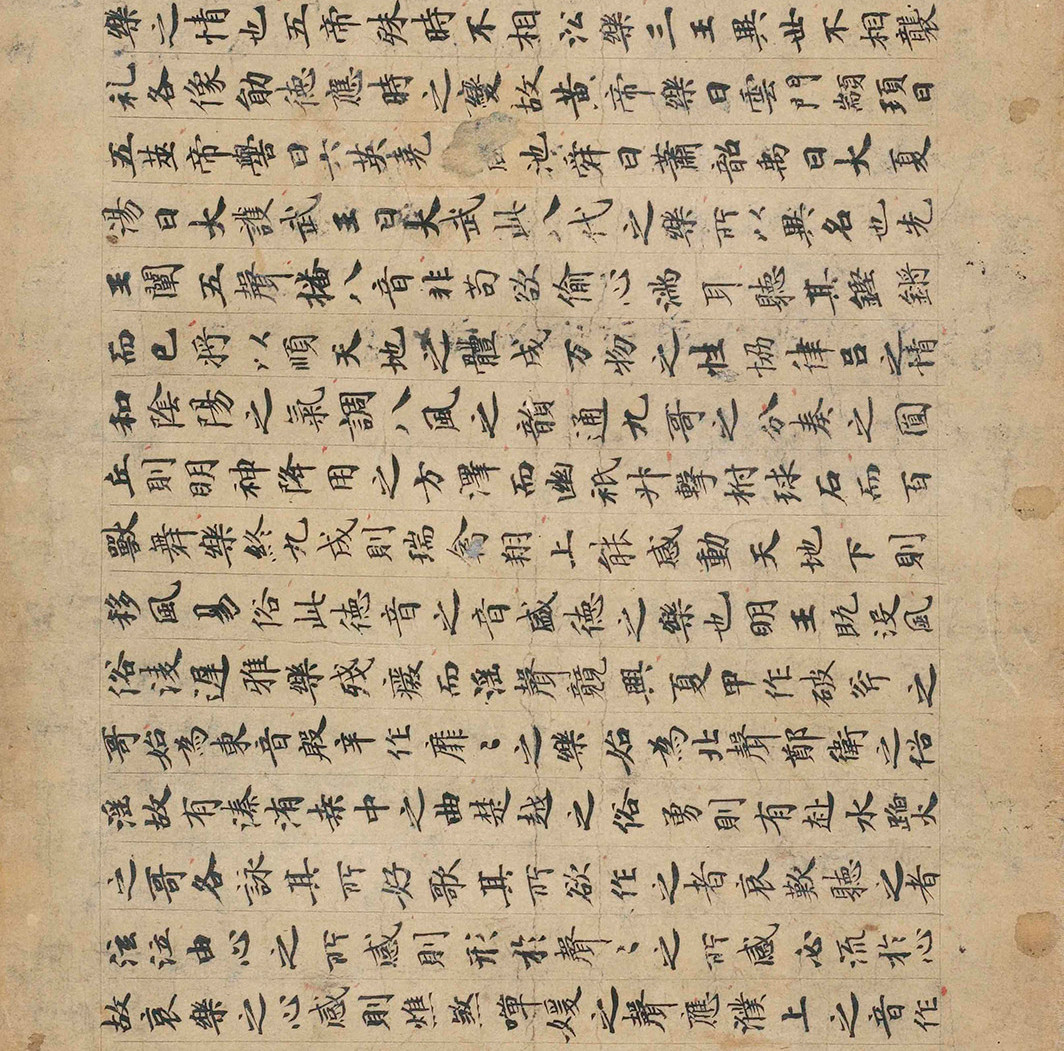 樂之情也五帝殊時不相沿樂三王異世不相襲
礼各像勛德應時之變故黄帝樂曰雲門顓頊曰
五莖帝嚳曰六英堯池舜曰蕭韶禹曰大夏
湯曰大護武王曰大武此八代之樂所以異名也先
王闡五聲播八音非苟欲偷心滿耳聽其鏗鏘
而已将以順天地之體成万物之性協律吕之情
和陰陽之氣調八風之韻通九哥之分奏之圓
丘則明神降用之方澤而幽祇升擊拊球石而百
獸舞樂終九成則瑞禽翔上能感動天地下則
移風易俗此德音之音盛德之樂也明王既没風
俗淩遲雅樂殘癈而淫聲競興夏甲作破斧之
哥始為東音殷辛作靡〻之樂始為北聲鄭衛之俗
淫故有溱洧桒中之曲楚越之俗勇則有赴水蹈火
之哥各詠其所好歌其所欲作之者哀歎聽之者
泫泣由心之所感則形於聲〻之所感必流於心
故哀樂之心感則燋煞嘽媛之聲應濮上之音作